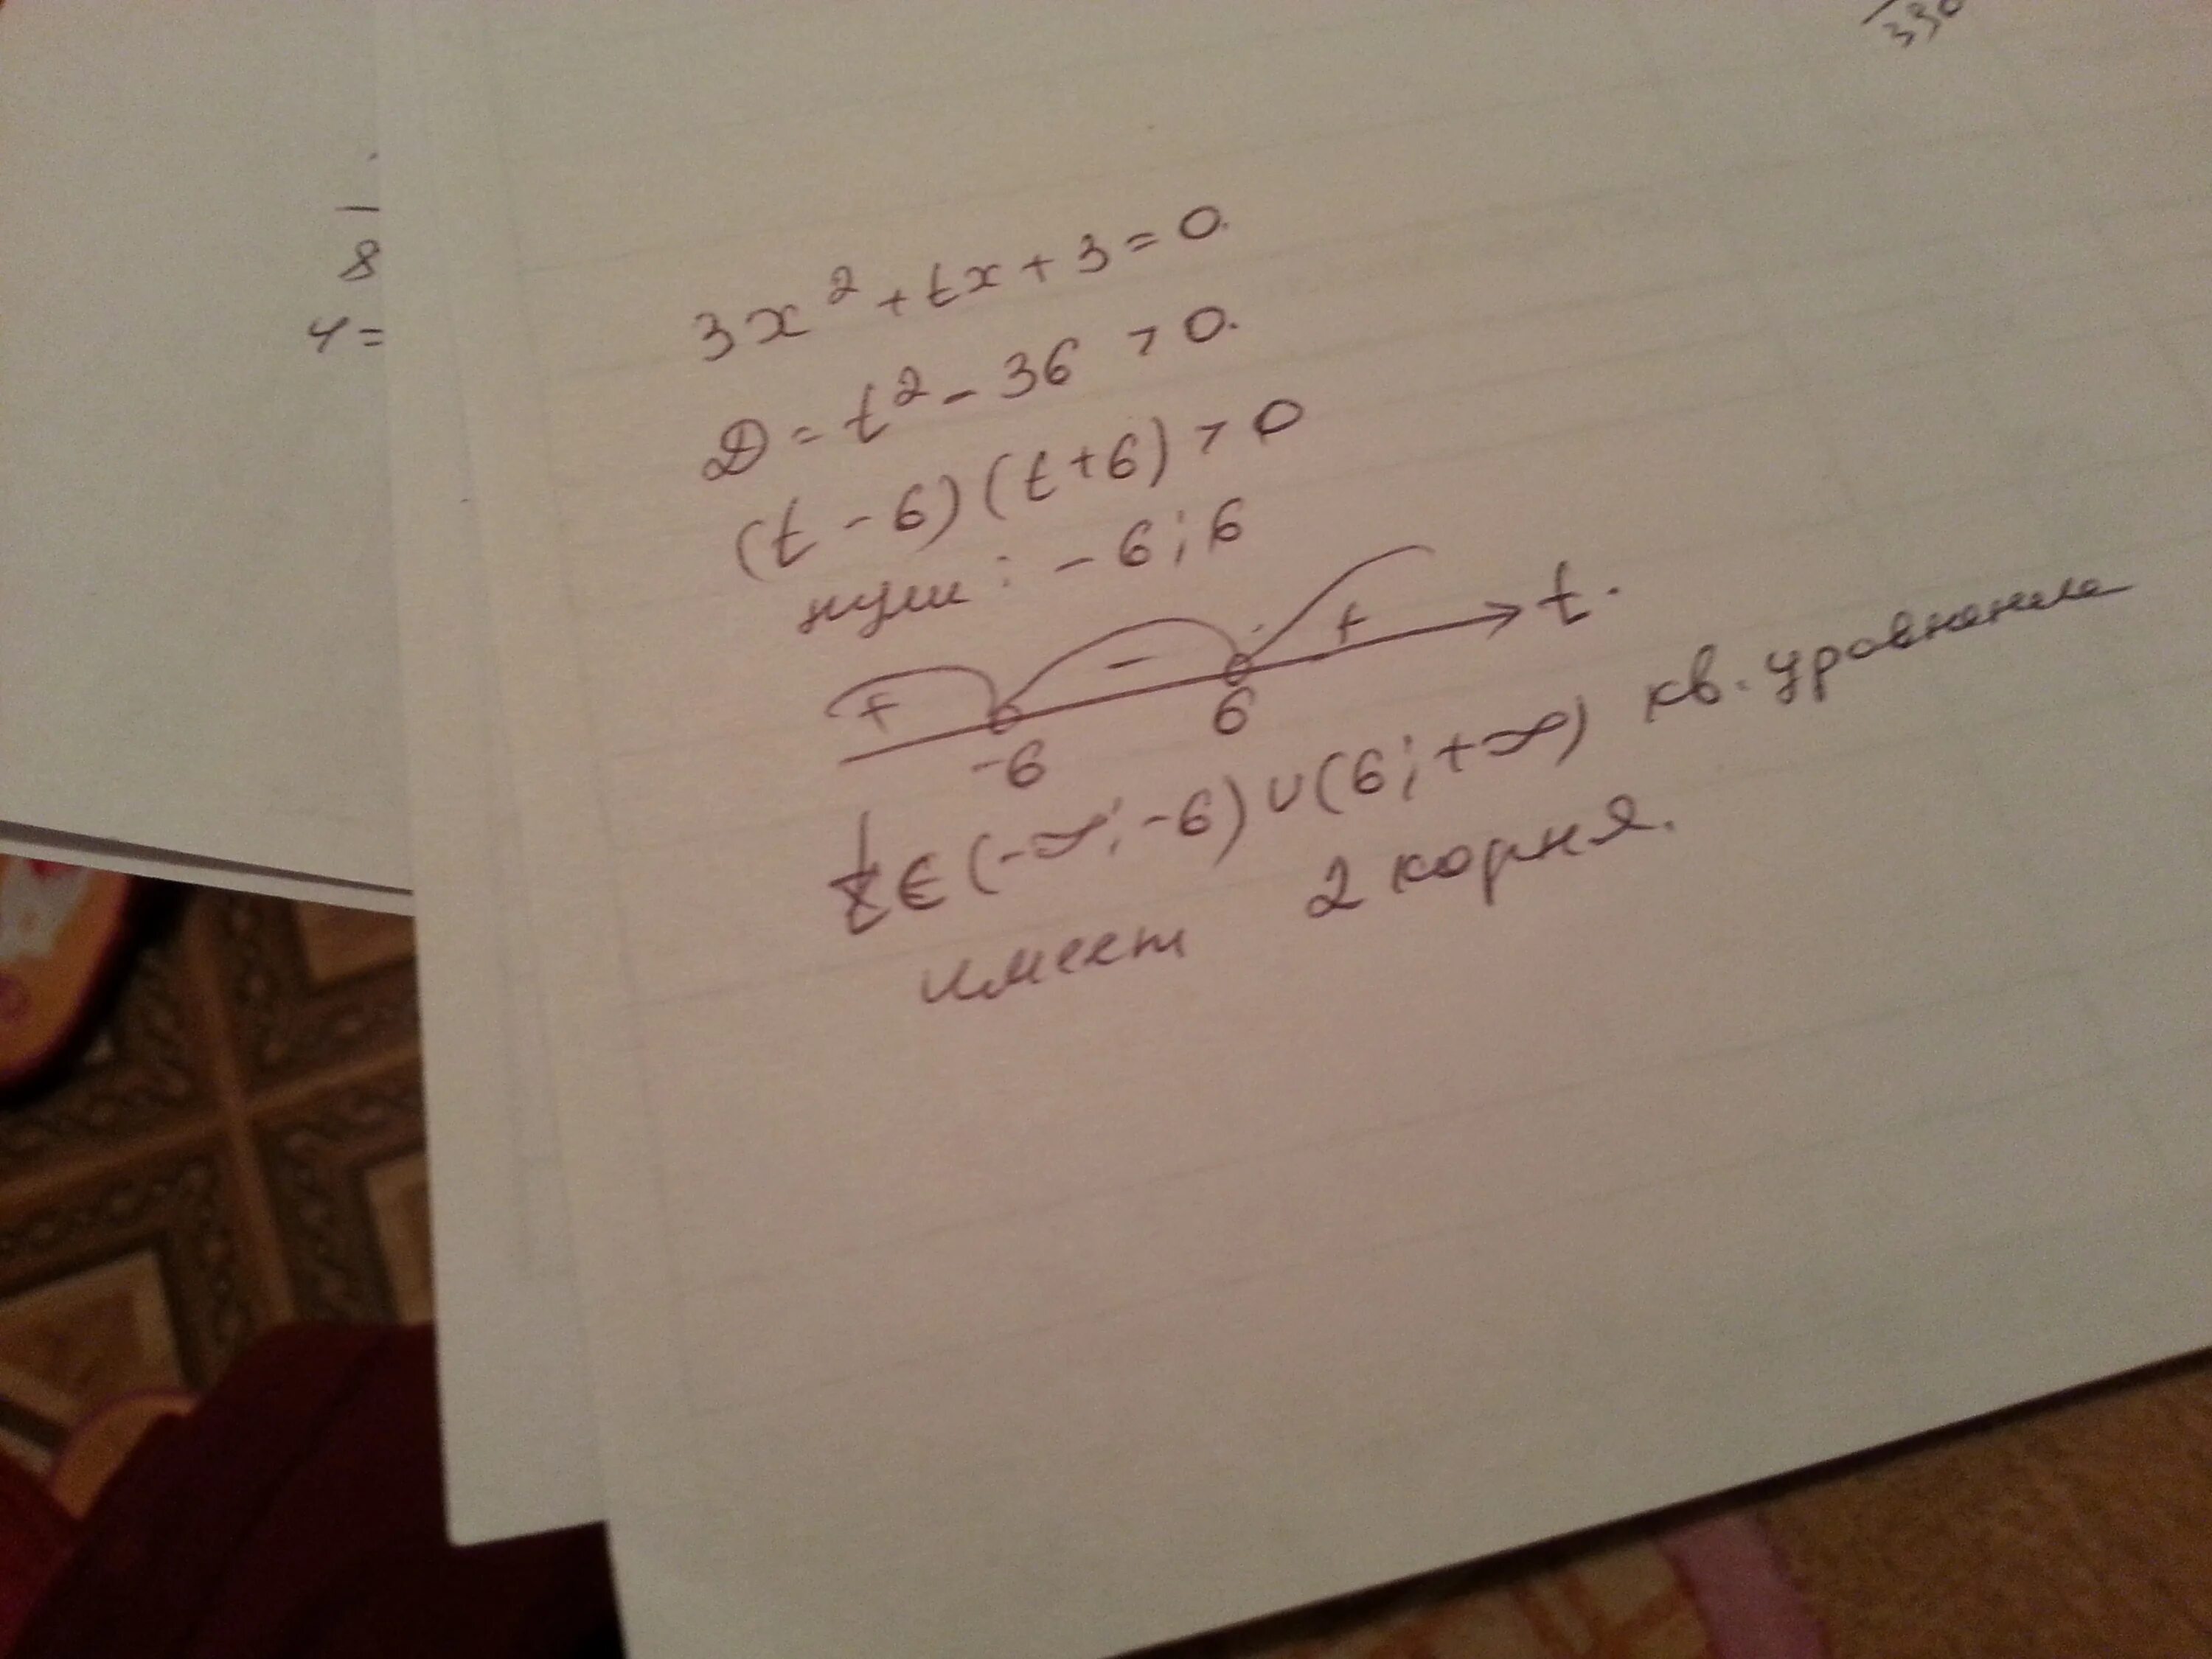 330
8
4=
3x² + tx + 3 = 0.
D = t² - 36 > 0.
(t - 6)(t + 6) > 0
нули: -6; 6
+ - + t.
-6 6
t ∈ (-∞; -6) ∪ (6; +∞) кв. уравнения
имеет 2 корня.